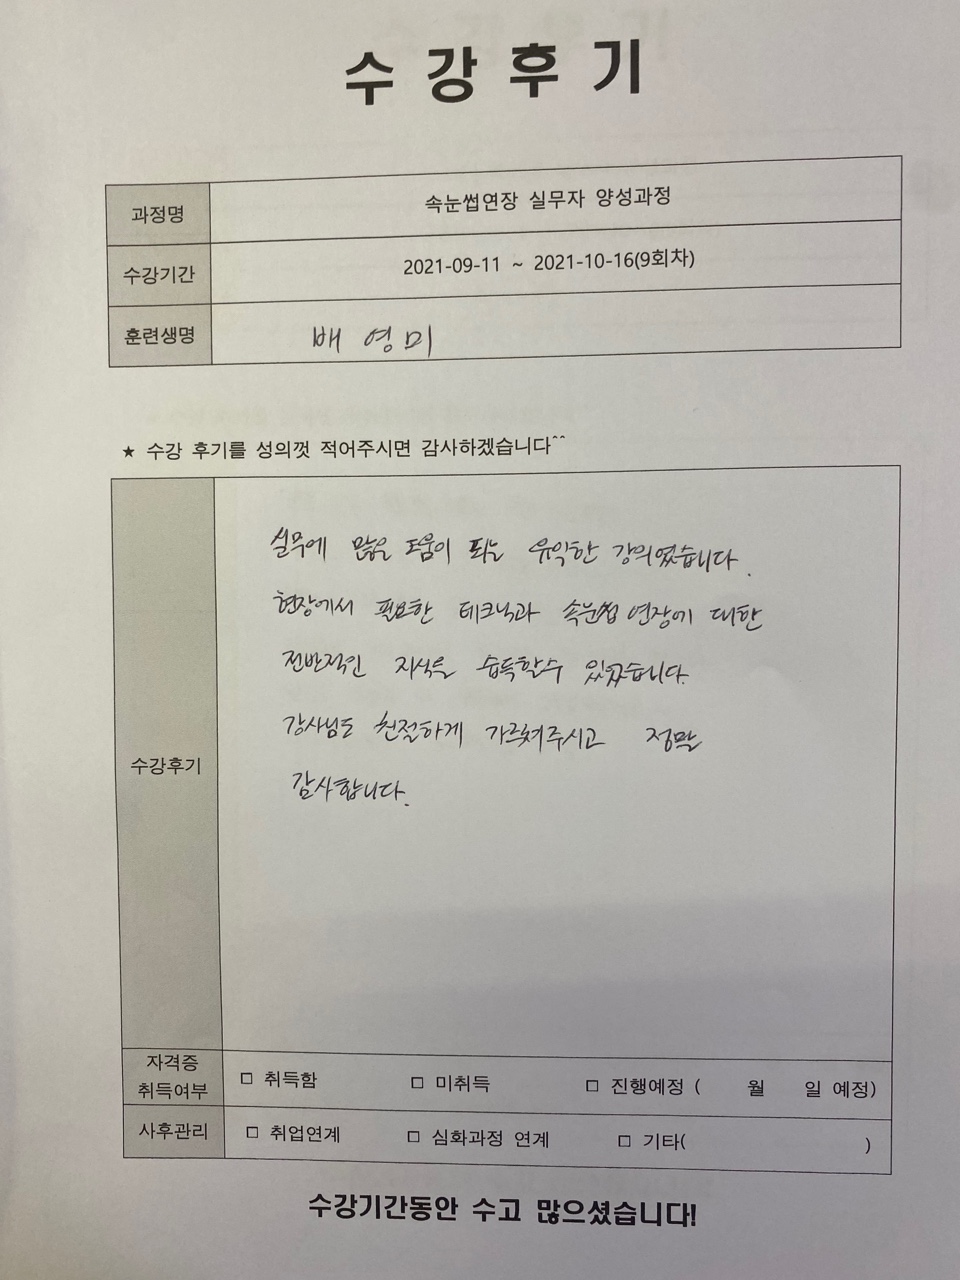 수강후기
과정명 속눈썹연장 실무자 양성과정
수강기간 2021-09-11 ~ 2021-10-16(9회차)
훈련생명 배영미
★ 수강 후기를 성의껏 적어주시면 감사하겠습니다^^
실무에 많은 도움이 되는 유익한 강의였습니다.
현장에서 필요한 테크닉과 속눈썹 연장에 대한
전반적인 지식을 습득할수 있었습니다.
수강후기
강사님도 친절하게 가르쳐주시고 정말
감사합니다.
자격증
취득여부 □ 취득함 □ 미취득 □ 진행예정 ( 월 일 예정)
사후관리 □ 취업연계 □ 심화과정 연계 □ 기타( )
수강기간동안 수고 많으셨습니다!